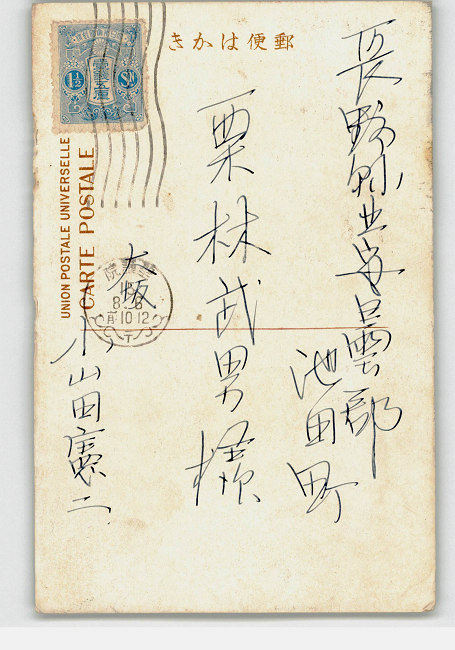 きかは便郵
長野縣北安曇郡
池田町
栗林武男様
大阪
小山田憲二
UNION POSTALE UNIVERSELLE
CARTE POSTALE
1½
8-6
10-12